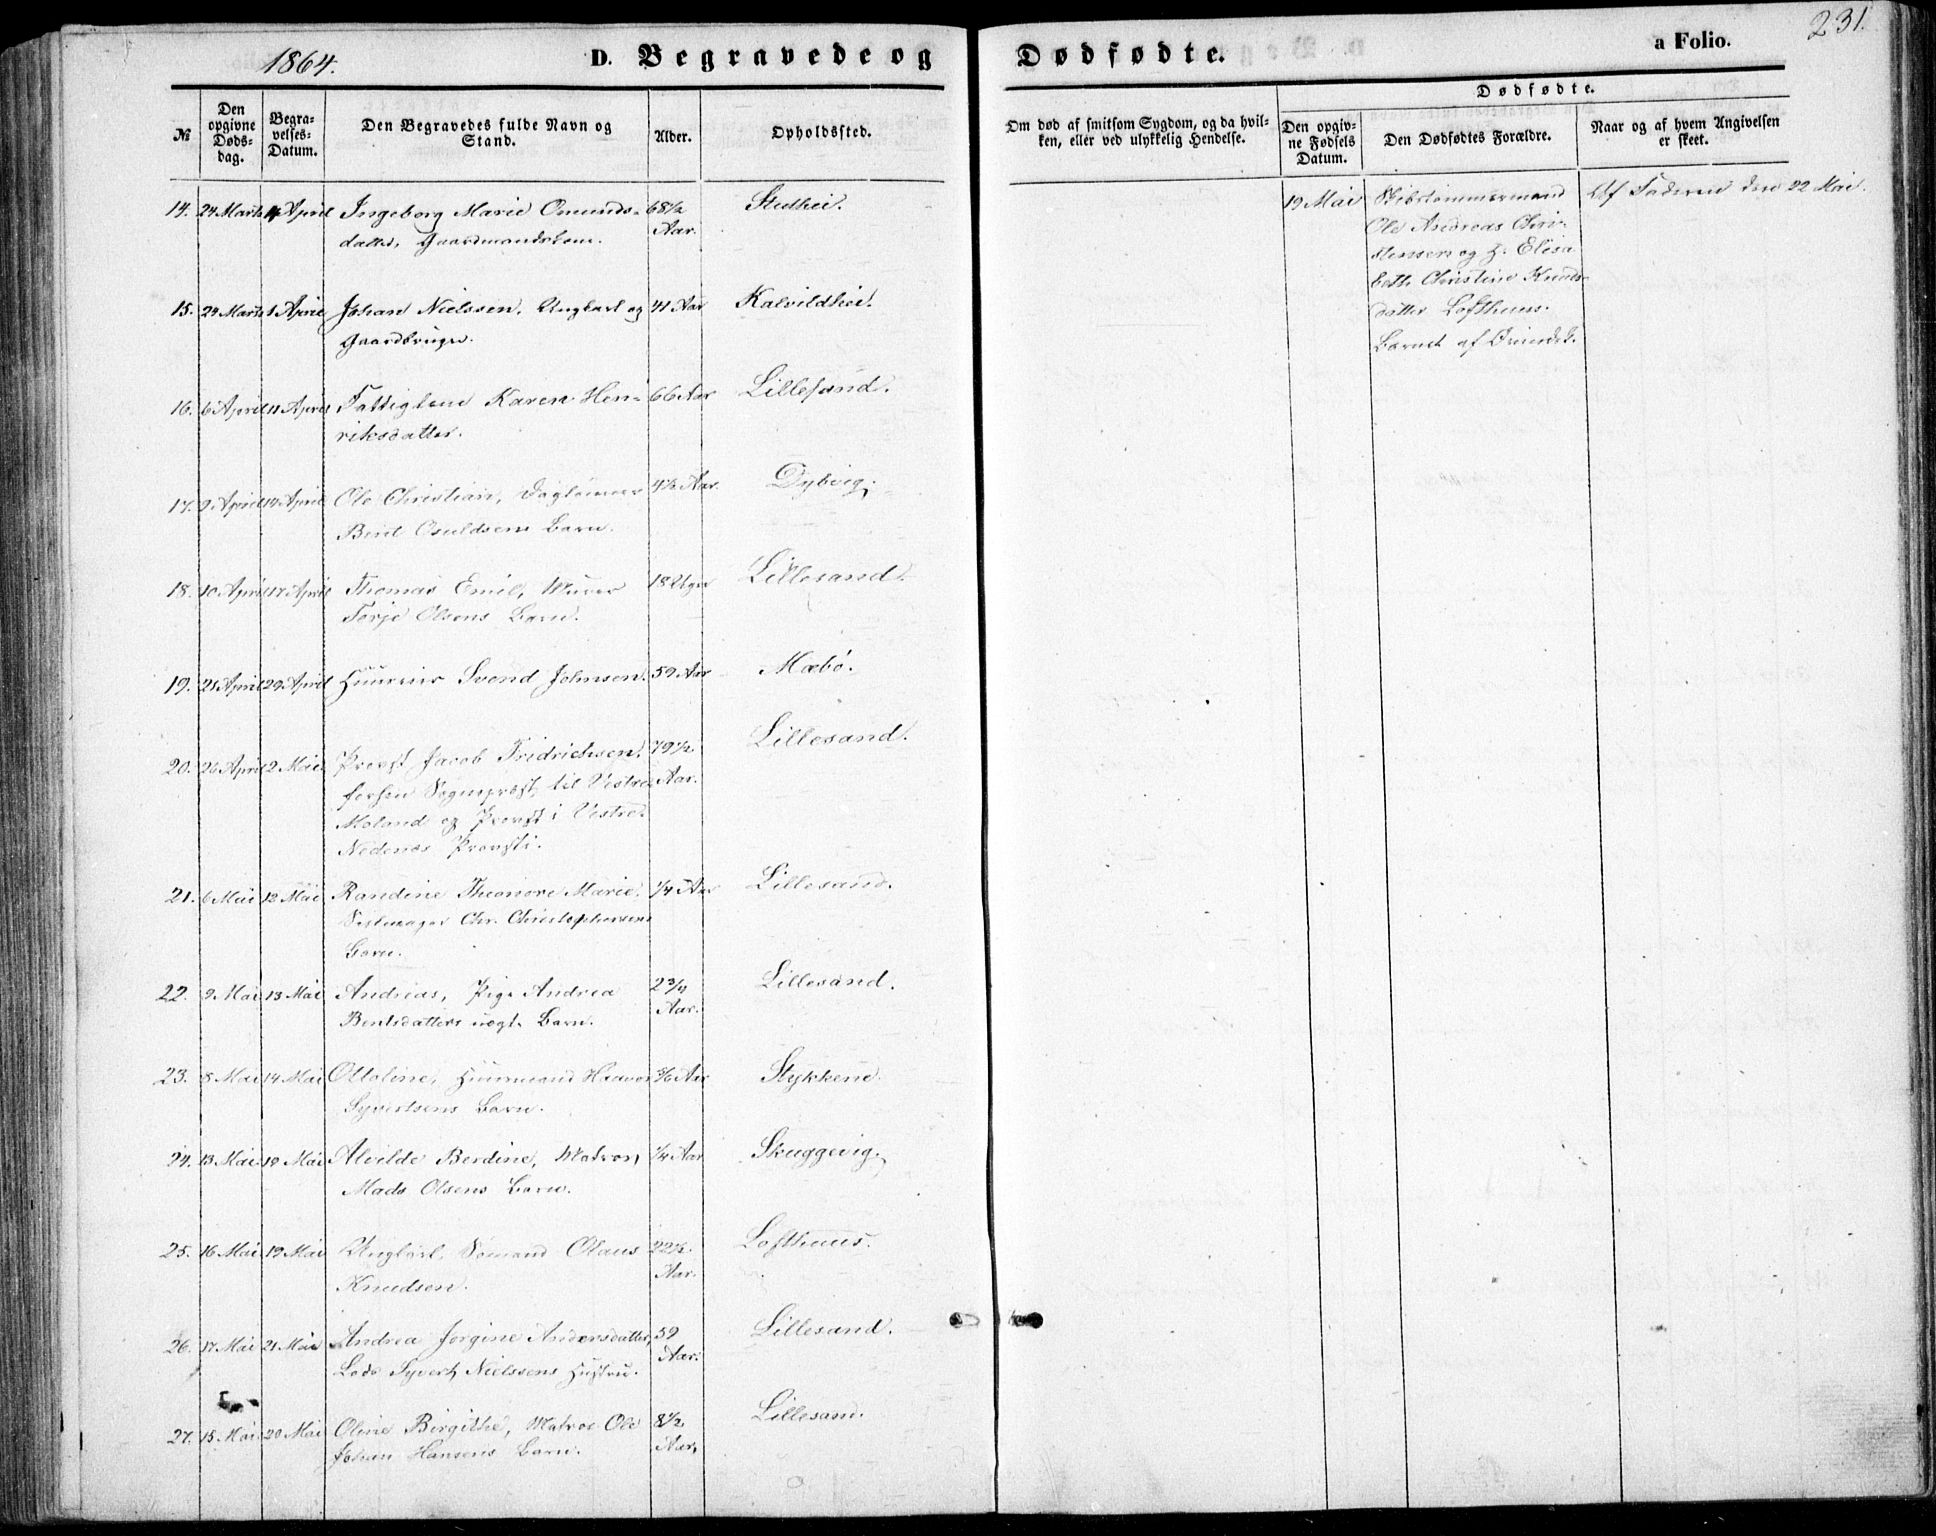 1864.
D. Begravede og Dødfødte.
a Folio.
231.
№
Den opgivne Døds-dag.
Begra-velses-Datum.
Den Begravedes fulde Navn og Stand.
Alder.
Opholdssted.
Om død af smitsom Sygdom, og da hvil-
ken, eller ved ulykkelig Hendelse.
Dødfødte.
Den opgiv-ne Fødsels Datum.
Den Dødfødtes Forældre.
Naar og af hvem Angivelsen er skeet.
14. 24 Marts April Ingeborg Marie Omunds- 68½ Stedhei.
datter, Gaardmandskone. Aar.
19 Mai Skibstømmermand Af Faderen den 22 Mai.
Ole Andreas Chri-
stensen og H. Elisa
beth Christine Knuds-
datter Lofthuus.
Barnet af
15. 29 Marts April Johan Nielssen, Ungkarl og 41 Aar Kalvildhei.
Gaardbruger.
16. 6 April 11 April Fattiglem Karen Hen- 66 Aar Lillesand.
riksdatter.
17. 9 April 14 April Ole Christian, Daglønner 4½ Aar Dybvig.
Bent Osuldsens Barn.
18. 10 April 17 April Thomas Emil, Murer 18 Uger Lillesand.
Terje Olsens Barn.
19. 21 April 29 April Huusmand Svend Johnsen. 59 Aar Mæbø.
20. 26 April 2 Mai Provst Jacob Fridrichsen, 79½ Lillesand.
forhen Sognepræst til Vestre Aar.
Moland og Provst i Vestre
Nedenæs Provsti.
21. 6 Mai 12 Mai Randine Theonore Marie, ¼ Aar Lillesand.
Seilmager Chr. Christophersens
Barn.
22. 9 Mai 13 Mai Andreas, Pige Andrea 2¾ Lillesand.
Bentsdatters uægt. Barn. Aar.
23. 8 Mai 14 Mai Ottoline, Huusmand Haavor Aar Stykkene.
Syvertsens Barn.
24. 13 Mai 19 Mai Alvilde Berdine, Matros ¼ Aar Skuggevig.
Mads Olsens Barn.
25. 16 Mai 19 Mai Ungkarl, Sømand Olaus 22½ Lofthuus.
Knudsen. Aar.
26. 17 Mai 21 Mai Andrea Jorgine Andersdatter, 59 Lillesand.
Lods Syvert Nielssens Hustru. Aar.
27. 15 Mai 20 Mai Oline Birgithe, Matros Ole 8½ Lillesand.
Johan Hansens Barn. Aar.